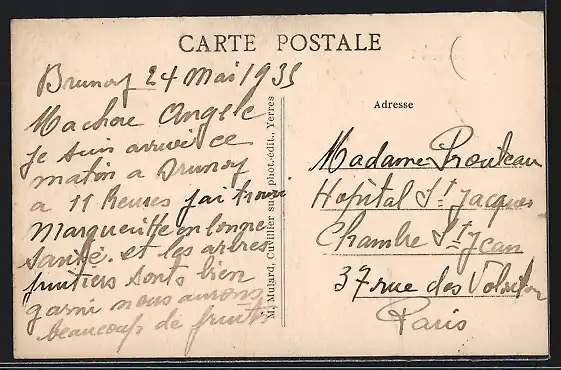 CARTE POSTALE
Brunoy 24 Mai 1935
Ma chere Angele
Je suis arrivée ce
matin a Brunoy
a 11 heures j'ai trouvé
Margueritte en bonne
santé. et les arbres
fruitiers sont bien
garni nous aurons
beaucoup de fruits
M. Mulard, Cuvillier succ., phot.-édit., Yerres
Adresse
Madame Prouteau
Hopital St Jacques
Chambre St Jean
37 rue des Volontaires
Paris